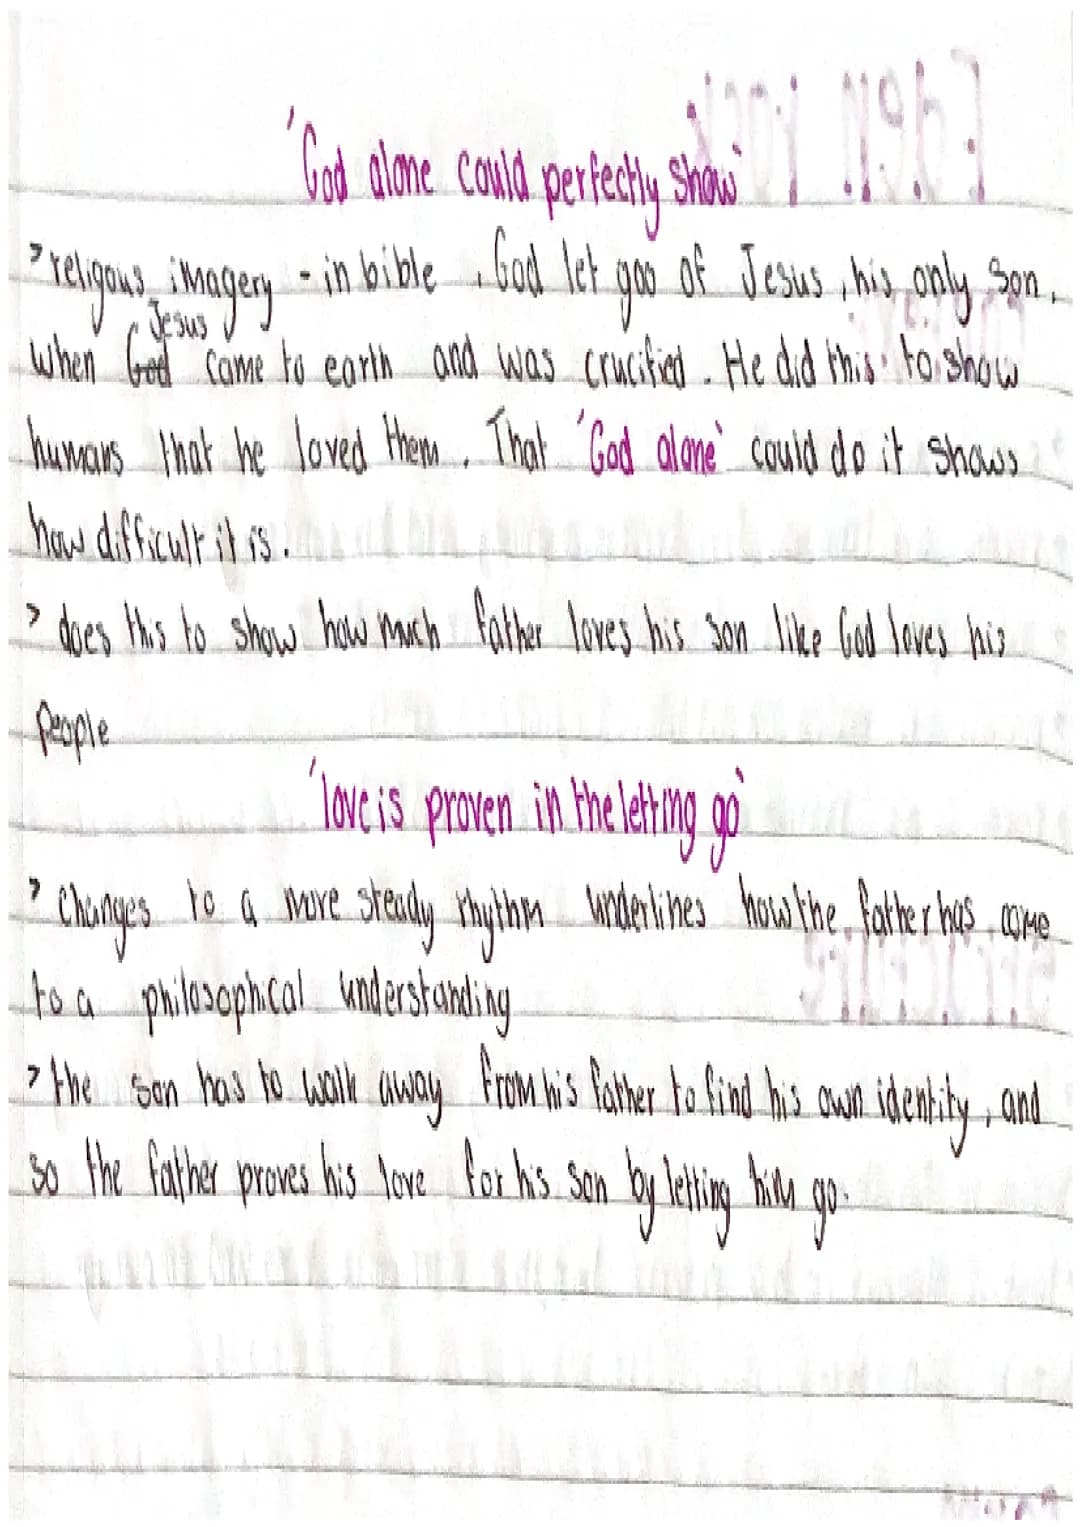 'God alone could perfectly show'
> religous imagery - in bible, God let goo of Jesus, his only son,
Jesus
when God came to earth and was crucified. He did this to show
humans that he loved them. That 'God alone' could do it shows
how difficult it is.
> does this to show how much father loves his son like God loves his
people
'love is proven in the letting go'
> changes to a more steady rhythm underlines how the father has come
to a philosophical understanding
> the son has to walk away from his father to find his own identity, and
so the father proves his love for his son by letting him go.
Eden rock